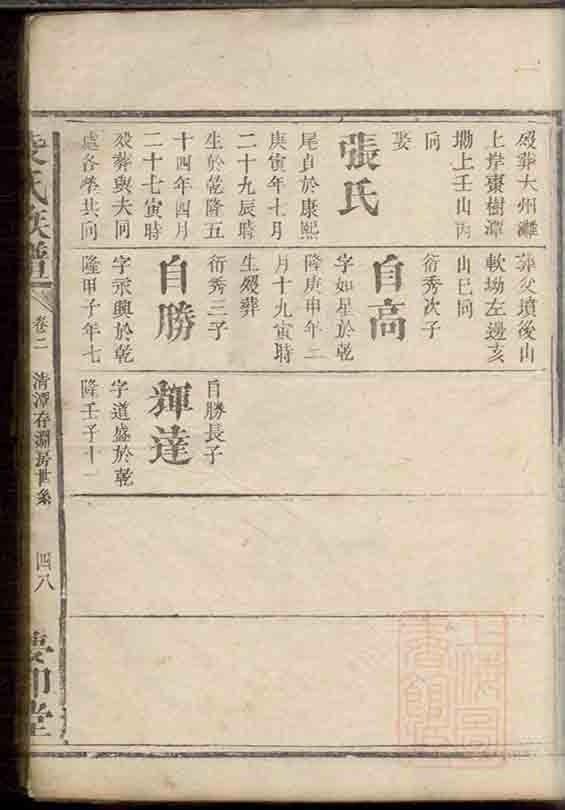 歿葬大州灘
上岸棗樹潭
塝上壬山丙
向
娶
張氏
尾貞於康熙
庚寅年七月
二十九辰時
生於乾隆五
十四年四月
二十七寅時
歿葬與夫同
處各塋共向
葬父墳後山
軟坳左邊亥
山巳向
衍秀次子
自高
字如星於乾
隆庚申年二
月十九寅時
生歿葬
衍秀三子
自勝
字承興於乾
隆甲子年七
自勝長子
輝達
字道盛於乾
隆壬子十一
氏族譜
卷二
清潭存淵房世系
四八
堂
上海圖
書館藏